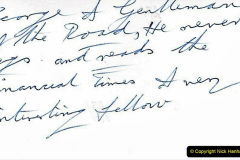 George A Gentleman
of the Road, He never
begs and reads the
Financial Times A very
interesting fellow
© Copyright Nick Hanham